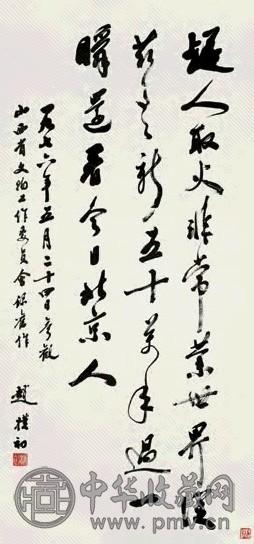 猿人取火非常業世界從
茲新五十萬年過一
瞬還看今日北京人
一九七六年五月二十四日參觀
山西省文物工作委員會作
趙樸初
中华收藏网
www.pmv.cn